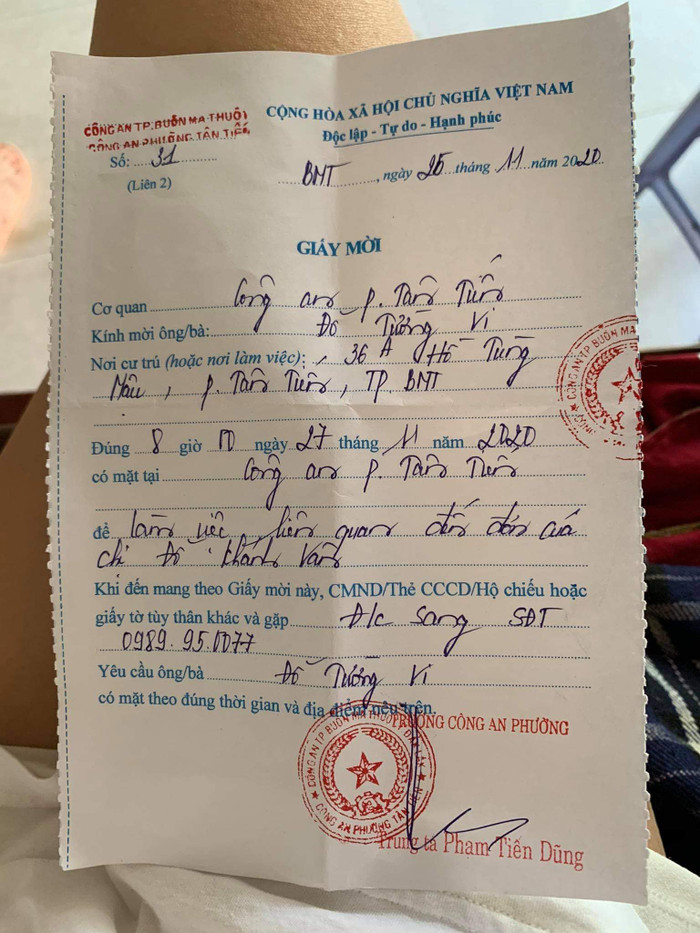 CÔNG AN TP.BUÔN MA THUỘT
CÔNG AN PHƯỜNG TÂN TIẾN
Số: 31
(Liên 2)
CỘNG HÒA XÃ HỘI CHỦ NGHĨA VIỆT NAM
Độc lập - Tự do - Hạnh phúc
BMT, ngày 25 tháng 11 năm 2020
GIẤY MỜI
Cơ quan Công an P. Tân Tiến
Kính mời ông/bà: Đỗ Tường Vi
Nơi cư trú (hoặc nơi làm việc): 36A Hồ Tùng
Mậu, P. Tân Tiến, TP. BMT
Đúng 8 giờ 00 ngày 27 tháng 11 năm 2020
có mặt tại Công an P. Tân Tiến
để làm việc liên quan đến đơn của
chị Đỗ Thánh Vân
Khi đến mang theo Giấy mời này, CMND/Thẻ CCCD/Hộ chiếu hoặc
giấy tờ tùy thân khác và gặp Đ/c Sang SĐT
0989.95.0077
Yêu cầu ông/bà Đỗ Tường Vi
có mặt theo đúng thời gian và địa điểm nêu trên.
TRƯỞNG CÔNG AN PHƯỜNG
CÔNG AN TP BUÔN MA THUỘT
CÔNG AN PHƯỜNG TÂN TIẾN
Trung tá Phạm Tiến Dũng
CÔNG AN TP BUÔN MA